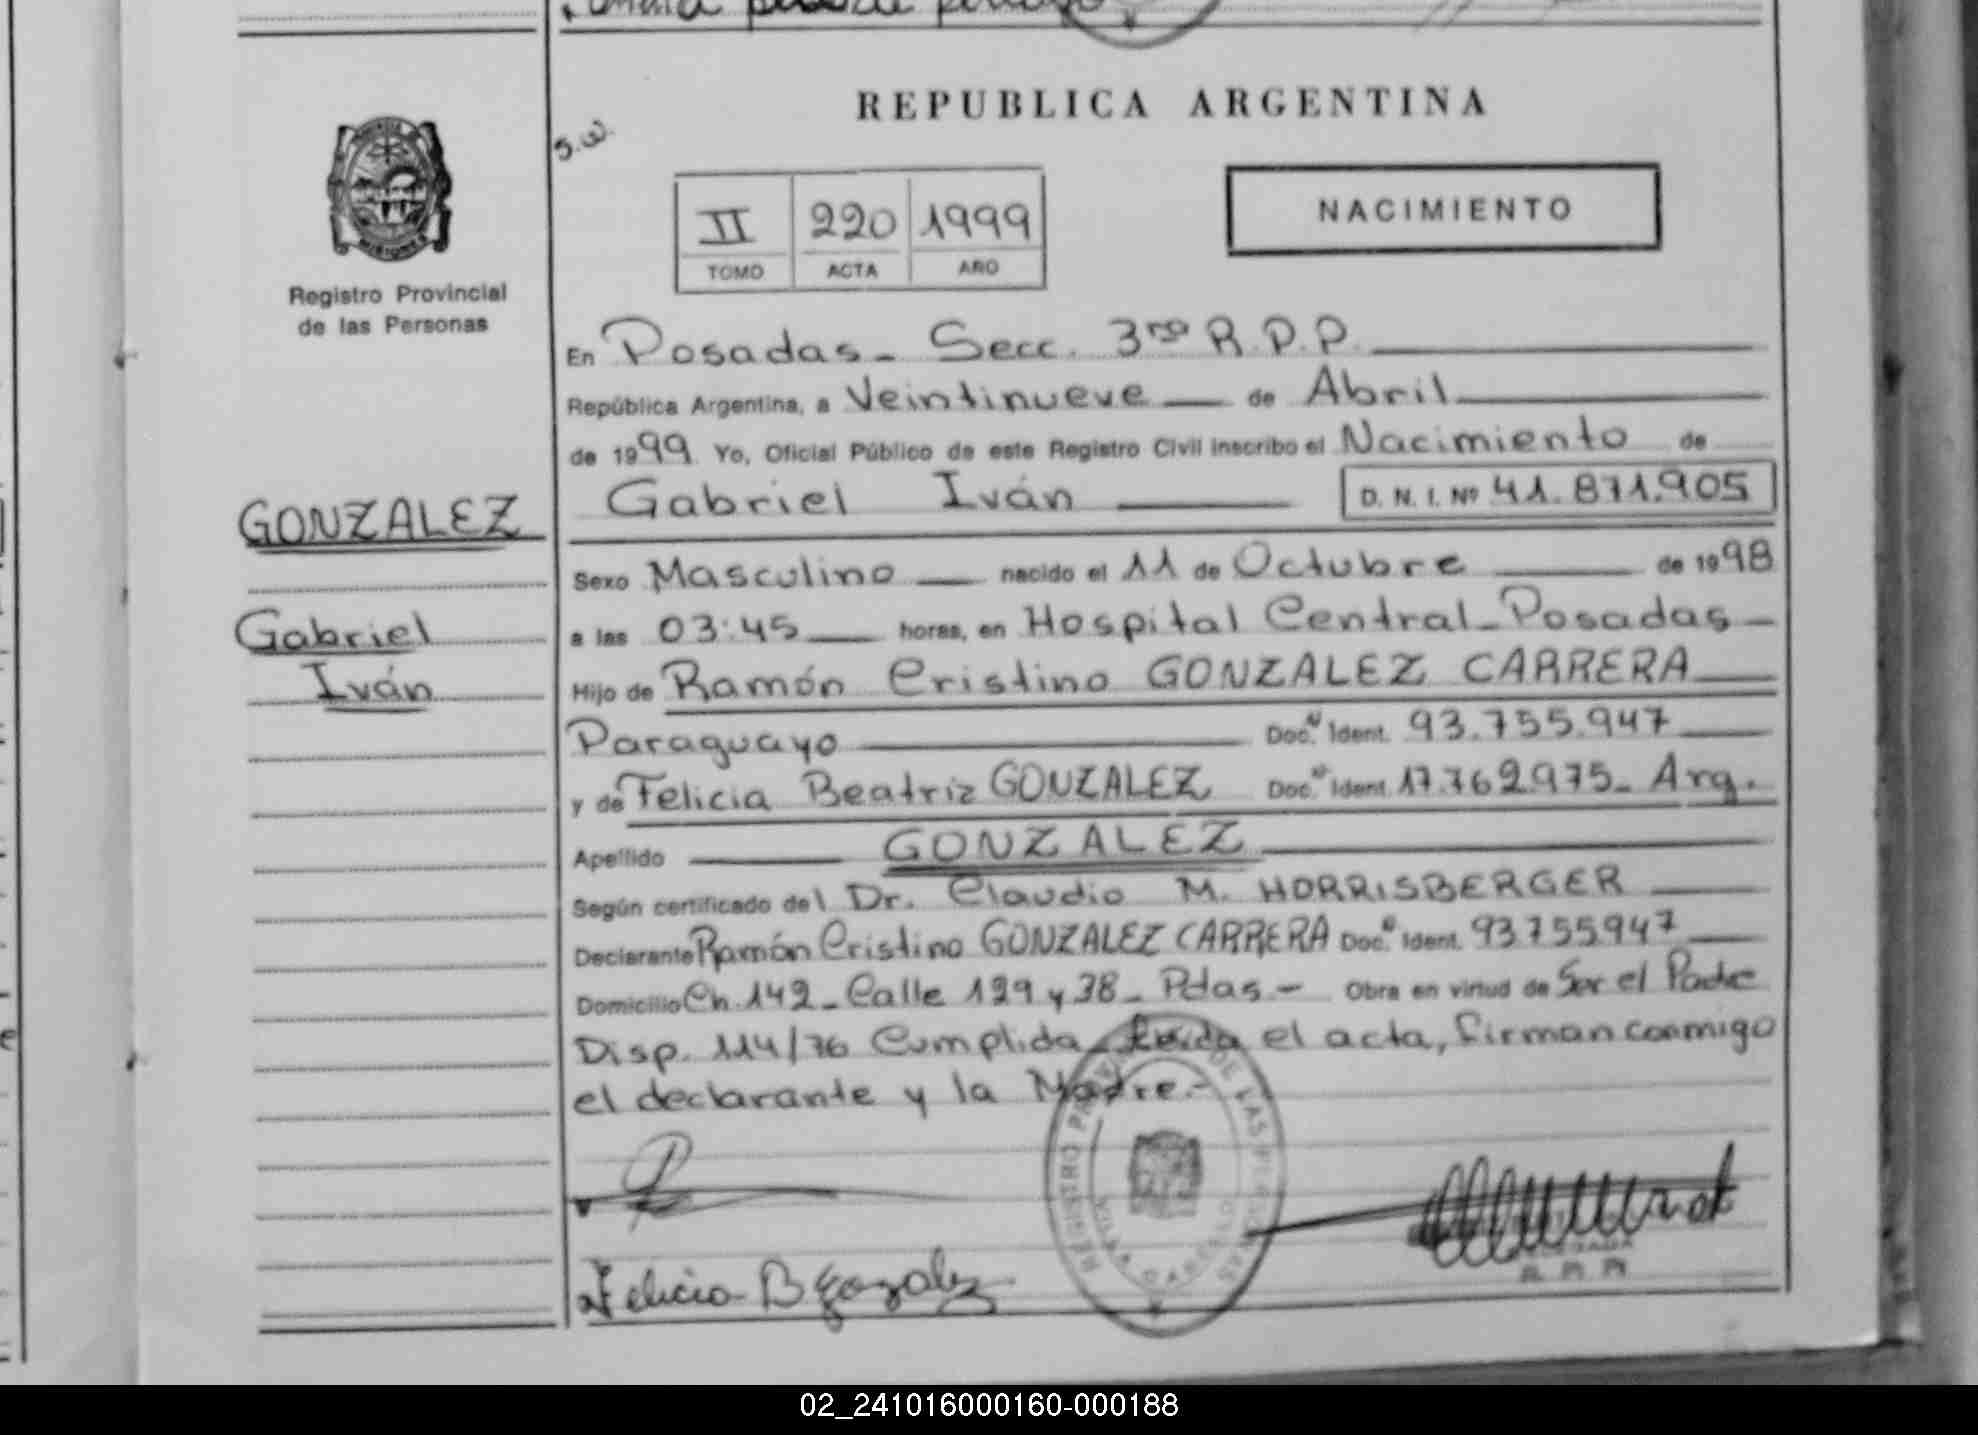 REPUBLICA ARGENTINA
S.W.
II 220 1999
TOMO ACTA AÑO
NACIMIENTO
Registro Provincial
de las Personas
En Posadas - Secc. 3ra R.P.P.
República Argentina, a Veintinueve de Abril
de 1999 Yo, Oficial Público de este Registro Civil inscribo el Nacimiento de
Gabriel Iván D. N. I. Nº 41.871.905
GONZALEZ
Gabriel
Iván
Sexo Masculino nacido el 11 de Octubre de 1998
a las 03:45 horas, en Hospital Central - Posadas -
Hijo de Ramón Cristino GONZALEZ CARRERA
Paraguayo Doc. Ident. 93.755.947
y de Felicia Beatriz GONZALEZ Doc. Ident. 17.762.975 - Arg.
Apellido GONZALEZ
Según certificado del Dr. Claudio M. HORRISBERGER
Declarante Ramón Cristino GONZALEZ CARRERA Doc. Ident. 93755947
Domicilio Ch. 142 - Calle 129 y 38 - Pdas. - Obra en virtud de Ser el Padre
Disp. 114/76 Cumplida - Leída el acta, firman conmigo
el declarante y la Madre.-
REGISTRO DE LAS
Felicia B Gonzalez
02_241016000160-000188